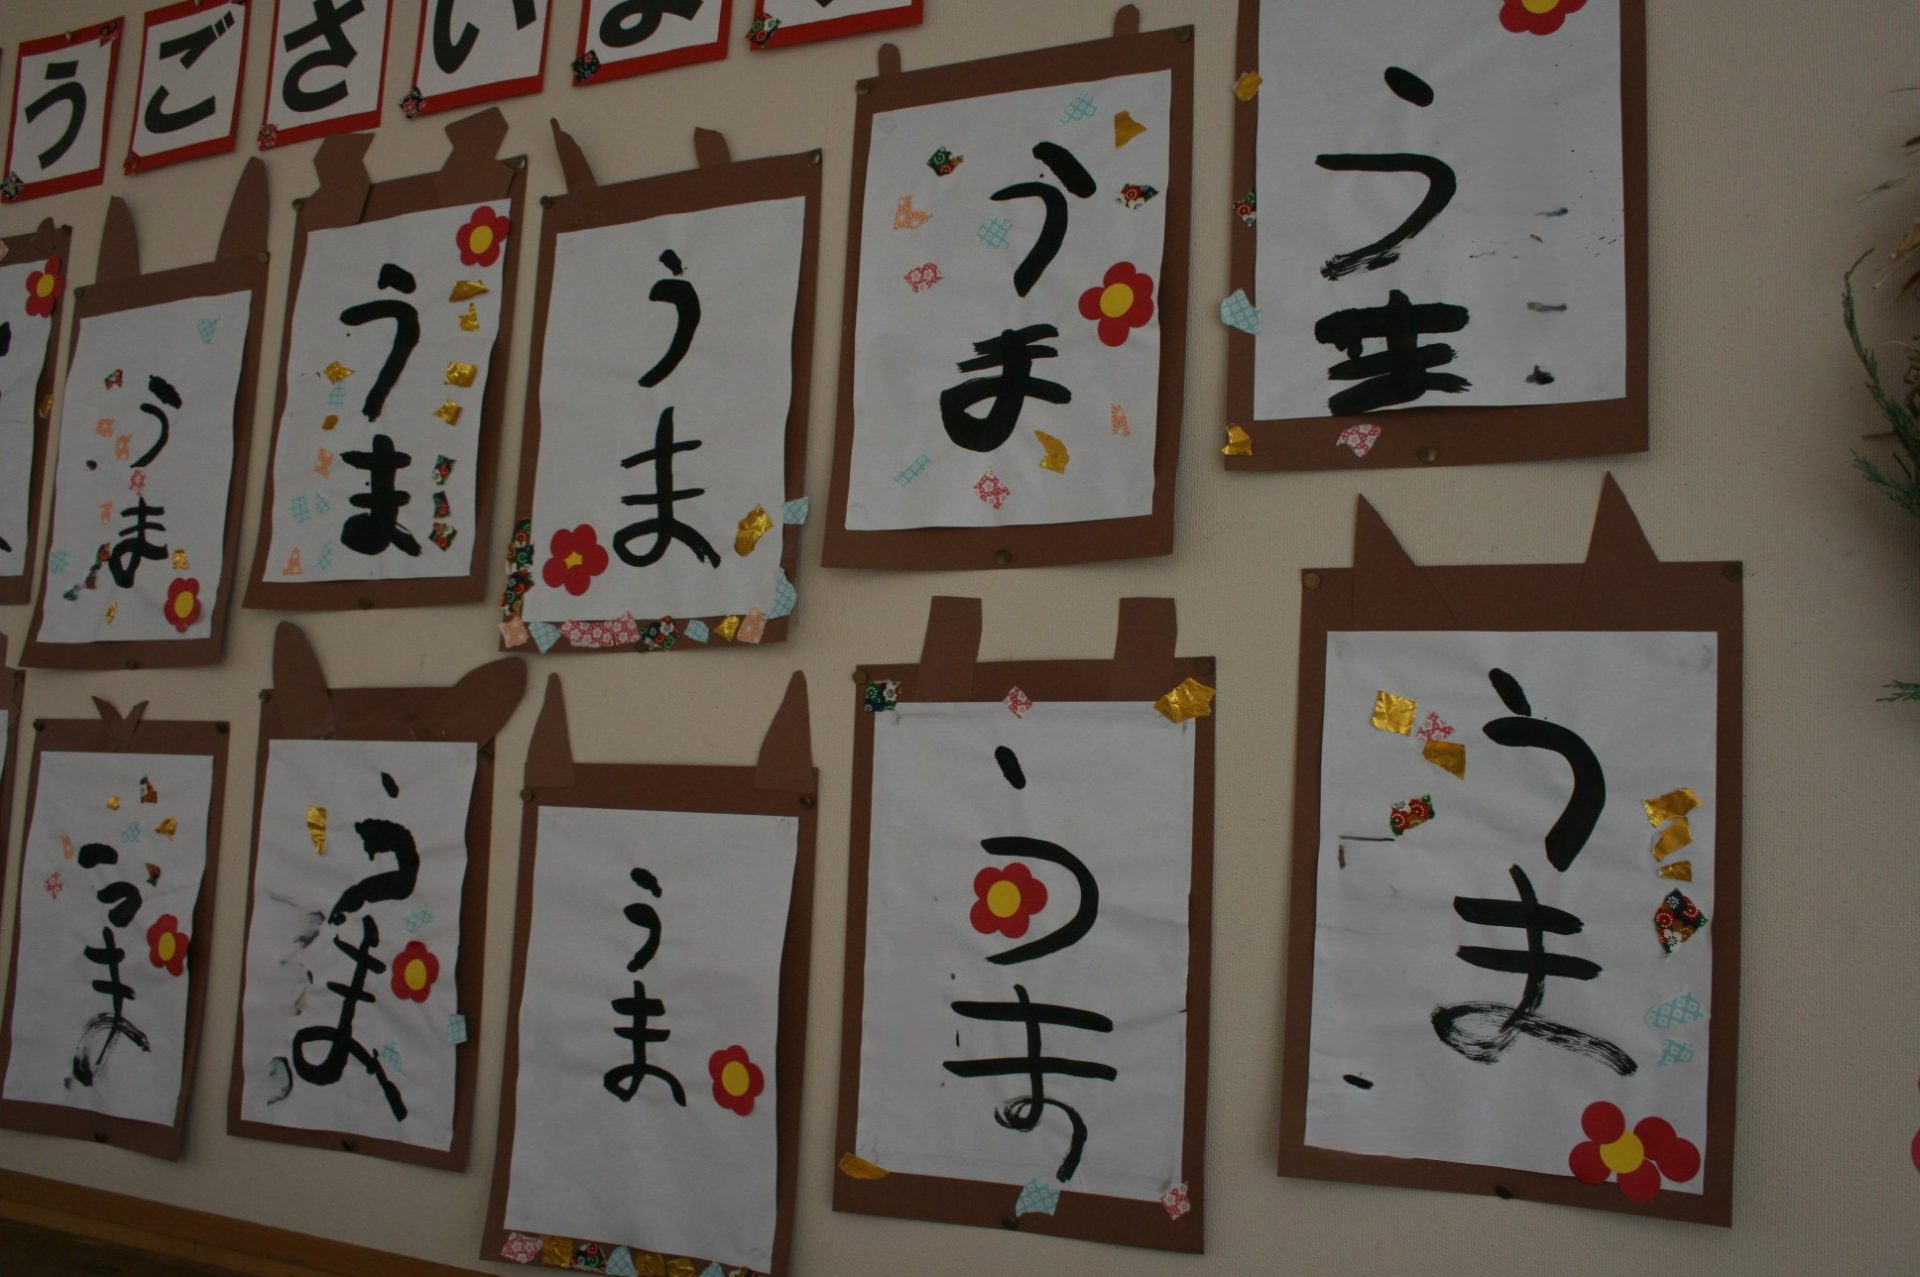 うございま
うま
うま
うま
うま
うま
うま
うま
うま
うま
うま
うま